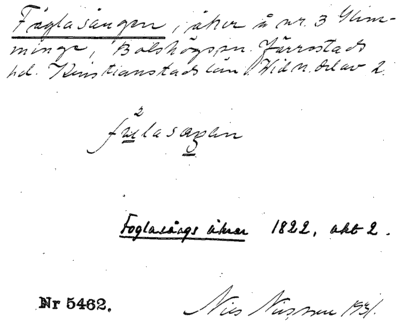 Fåglasången, åker å nr. 3 Glim-
minge, Bolshögs sn. Järrestads
hd. Kristianstads län. Vid n. del av 2.
fúlasaŋen
Foglasångs åkrar 1822, akt 2.
Nr 5462.
Nils Nilsson 1931.